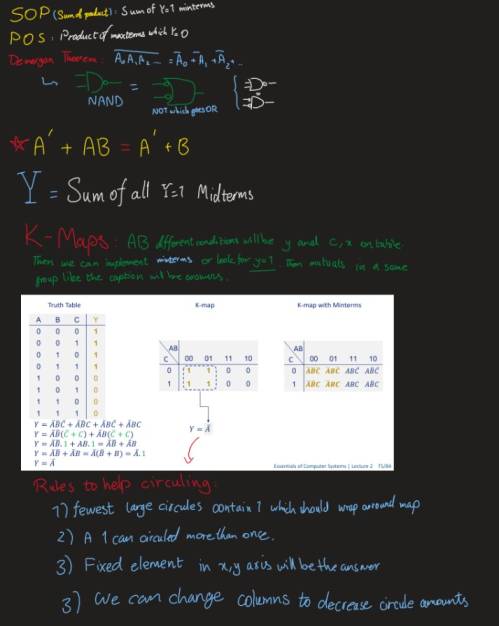 SOP (Sum of product): Sum of Y=1 minterms
POS: Product of maxterms which Y=0
Demorgan Theorem: A̅₀A̅₁A̅₂... = A̅₀ + A̅₁ + A̅₂ + ..
NAND
=
NOT which goes OR
A' + AB = A' + B
Y = Sum of all Y=1 Midterms
K-Maps: AB different conditions will be y and C, x on table.
Then we can implement minterms or look for y=1. Then mutuals in a same
group like the caption will be answers.
Truth Table
A B C Y
0 0 0 1
0 0 1 1
0 1 0 1
0 1 1 1
1 0 0 0
1 0 1 0
1 1 0 0
1 1 1 0
Y = A̅B̅C̅ + A̅B̅C + A̅BC̅ + A̅BC
Y = A̅B̅(C̅ + C) + A̅B(C̅ + C)
Y = A̅B̅.1 + A̅B.1 = A̅B̅ + A̅B
Y = A̅B̅ + A̅B = A̅(B̅ + B) = A̅.1
Y = A̅
K-map
AB
C 00 01 11 10
0 1 1 0 0
1 1 1 0 0
Y = A̅
K-map with Minterms
AB
C 00 01 11 10
0 A̅B̅C̅ A̅BC̅ ABC̅ AB̅C̅
1 A̅B̅C A̅BC ABC AB̅C
Essentials of Computer Systems | Lecture 2 71/84
Rules to help circuling:
1) fewest large circules contain 1 which should wrap around map
2) A 1 can circuled more than once.
3) Fixed element in x,y axis will be the answer
3) We can change columns to decrease circule amounts